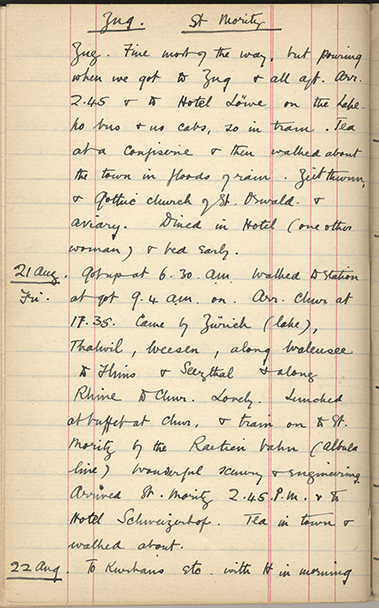 Zug. St Moritz
Zug. Fine most of the way, but pouring
when we got to Zug & all aft. Arr.
2.45 & to Hotel Löwe on the Lake.
No bus & no cabs, so in tram. Tea
at a Confiserie & then walked about
the town in floods of rain. Zeitthurm,
& Gothic church of St. Oswald. &
aviary. Dined in Hotel (one other
woman) & bed early.
21 Aug. Got up at 6.30. am. Walked to station
Fri. at got 9.4 am. on. Arr. Chur at
Came by Zürich (lake),
Thalwil, Weesen, along Walensee
to & Seezthal & along
Rhine to Chur. Lovely. Lunched
at buffet at Chur, & train on to St.
Moritz by the Raetian bahn (Albula
line) Wonderful scenery & engineering.
Arrived St. Moritz 2.45. P.M. & to
Hotel Schweizerhof. Tea in town &
walked about.
22 Aug. To Kurhaus etc. with H in morning